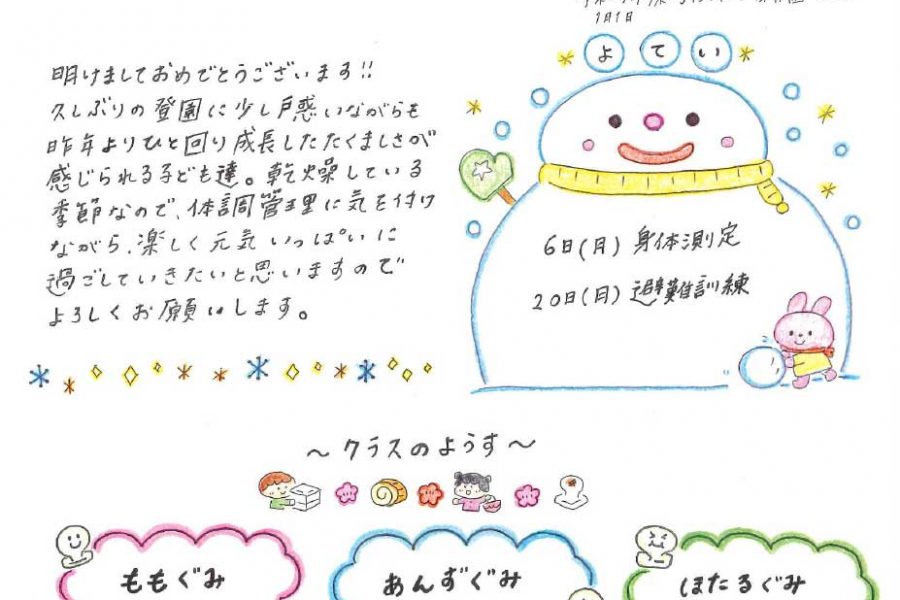 1月1日
よてい
明けましておめでとうございます!!
久しぶりの登園に少し戸惑いながらも
昨年よりひと回り成長したたくましさが
感じられる子ども達。乾燥している
季節なので、体調管理に気を付け
ながら、楽しく元気いっぱいに
過ごしていきたいと思いますので
よろしくお願いします。
6日(月) 身体測定
20日(月) 避難訓練
~クラスのようす~
ももぐみ
あんずぐみ
ほたるぐみ